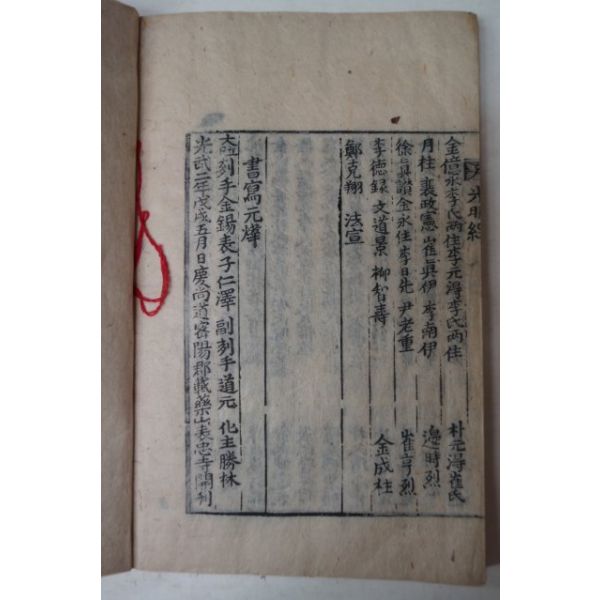 光明經
金億永李氏兩住李元淂李氏兩住 朴元淂崔氏
月桂 裵政憲 崔眞伊 李南伊 邉時烈
徐眞讃金永佳李日先 尹老重 崔亨烈
李德録 文道景 柳智壽 金成柱
鄭克翔 法宣
書寫元燁
大昷刻手金錫表子仁澤 副刻手道元 化主勝林
光武二年戊戌五月日慶尚道密陽郡載藥山表忠寺開刊